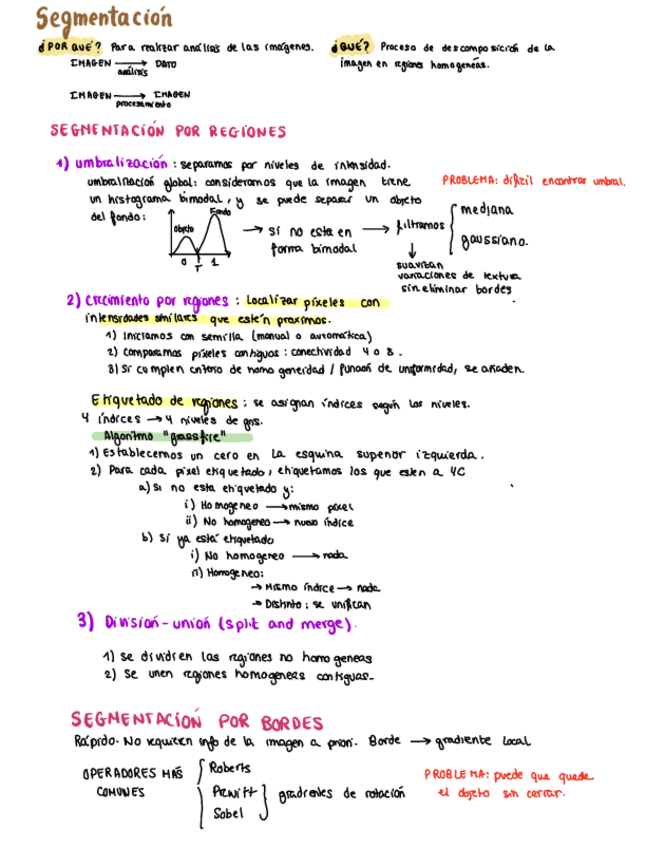 Segmentación
¿POR QUÉ? Para realizar análisis de las imágenes.
IMAGEN → DATO
análisis
IMAGEN → IMAGEN
procesamiento
¿QUÉ? Proceso de descomposición de la
imagen en regiones homogeneas.
SEGMENTACIÓN POR REGIONES
1) umbralización: separamos por niveles de intensidad.
umbralización global: consideramos que la imagen tiene
un histograma bimodal, y se puede separar un objeto
del fondo:
PROBLEMA: difícil encontrar umbral.
objeto
Fondo
0 T 1
→ sí no esta en
forma bimodal
→ filtramos
mediana
gaussiano.
suavizan
variaciones de textura
sin eliminar bordes
2) Crecimiento por regiones: Localizar píxeles con
intensidades similares que estén proximos.
1) Iniciamos con semilla (manual o automática)
2) Comparamos píxeles contiguos: conectividad 4 o 8.
3) Si cumplen criterio de homogeneidad / función de uniformidad, se añaden.
Etiquetado de regiones: se asignan índices según los niveles.
4 índices → 4 niveles de gris.
Algoritmo "grassfire"
1) Establecemos un cero en la esquina superior izquierda.
2) Para cada pixel etiquetado, etiquetamos los que esten a 4C
a) Si no esta etiquetado y:
i) Homogeneo → mismo pixel
ii) No homogeneo → nuevo índice
b) Sí ya está etiquetado
i) No homogeneo → nada
ii) Homogeneo:
→ Mismo índice → nada
→ Distinto: se unifican
3) División-unión (split and merge).
1) Se dividien las regiones no homogeneas
2) Se unen regiones homogeneas contiguas.
SEGMENTACIÓN POR BORDES
Rápido. No requieren info de la imagen a priori. Borde → gradiente local
OPERADORES MÁS
COMUNES
Roberts
Prewitt
Sobel
gradientes de rotación
PROBLEMA: puede que quede
el objeto sin cerrar.